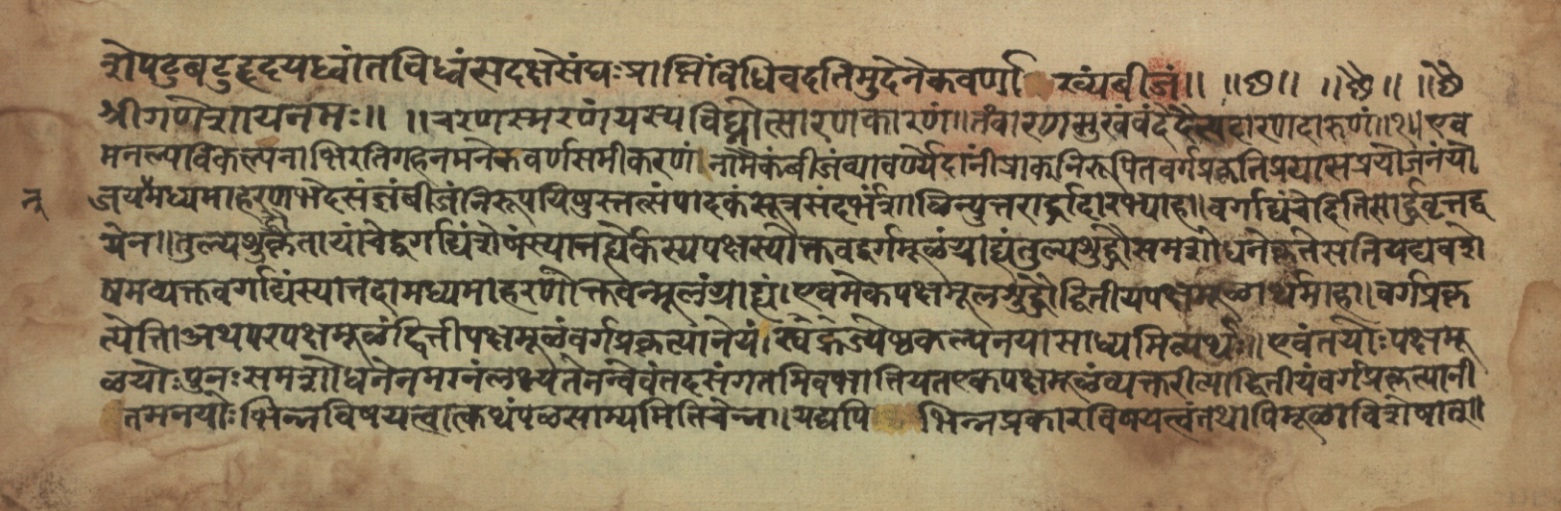 त्रोपटुबटुहृदयध्वांतविध्वंसदक्षेसंघःप्राप्तिंविधिवदतिमुदेनेकवर्णा ख्यंबीजं॥ ॥छ॥ ॥छै॥ ॥छै
श्रीगणेशायनमः॥ ॥चरणस्मरणंयस्यविघ्नोत्सारणकारणं॥तंवारणमुखंवंदेदैत्यदारणदारुणं॥१॥एव
मनल्पविकल्पनाभिरतिगहनमनेकवर्णसमीकरणं नामैकंबीजंव्यावर्ण्येदानींप्राक्निरूपितवर्गप्रकृतिप्रयासप्रयोजनंयो
न् जयन्मध्यमाहरणभेदसंज्ञंबीजंनिरूपयिषुस्तत्संपादकंसूत्रसंदर्भंशालिन्युत्तरार्द्धादारभ्याह॥वर्गाद्यंचेदितिसार्द्धवृत्तद्व
येन॥तुल्यशुद्धौकृतायांचेद्वर्गाद्यंशेषंस्यात्तर्ह्येकस्यपक्षस्योक्तवद्वर्गमूळंग्राह्यंतुल्यशुद्धौसमशोधनेकृतेसतियद्यवशे
षमव्यक्तवर्गाद्यंस्यात्तदामध्यमाहरणोक्तवन्मूलंग्राह्यं।एवमेकपक्षमूलशुद्धौद्वितीयपक्षमूळार्थमाह।वर्गप्रकृ
त्येति।अथपरपक्षमूळंद्वितीपक्षमूळंवर्गप्रकृत्यानेयं। साध्यमित्यर्थः॥एवंतयोःपक्षमू
ळयोःपुनःसमशोधनेनमानंलभ्यतेनन्वेवंतदसंगतमिवभातियतएकपक्षमूळंव्यक्तरीत्याद्वितीयंवर्गप्रकृत्यानी
तमनयोःभिन्नविषयत्वात्कथंपळसाम्यमितिचेन्न॥यद्यपि भिन्नप्रकारविषयत्वंतथापिमूळाविशेषात्॥